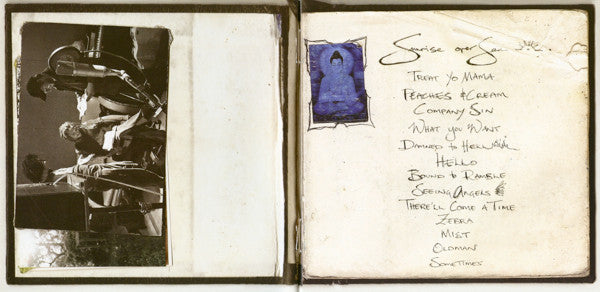 Sunrise over Sea
TREAT YO MAMA
PEACHES & CREAM
COMPANY SIN
WHAT YOU WANT
DAMNED to HELL
HELLO
BOUND to RAMBLE
SEEING ANGELS
THERE'LL COME A TIME
ZEBRA
MIST
OLDMAN
SOMETIMES